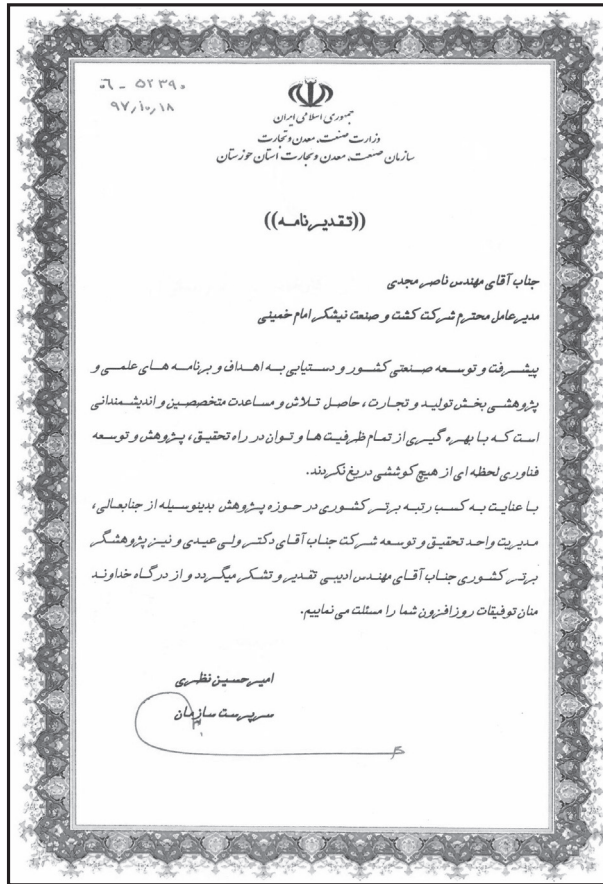 ۰۶ - ۵۲۳۹۰
۹۷٫۱۰٫۱۸
جمهوری اسلامی ایران
وزارت صنعت، معدن و تجارت
سازمان صنعت، معدن و تجارت استان خوزستان
((تقدیرنامه))
جناب آقای مهندس ناصر مجدی
مدیرعامل محترم شرکت کشت و صنعت نیشکر امام خمینی
پیشرفت و توسعه صنعتی کشور و دستیابی به اهداف و برنامه های علمی و
پژوهشی بخش تولید و تجارت، حاصل تلاش و مساعدت متخصصین و اندیشمندانی
است که با بهره گیری از تمام ظرفیت ها و توان در راه تحقیق، پژوهش و توسعه
فناوری لحظه ای از هیچ کوششی دریغ نکردند.
با عنایت به کسب رتبه برتر کشوری در حوزه پژوهش بدینوسیله از جنابعالی،
مدیریت واحد تحقیق و توسعه شرکت جناب آقای دکتر ولی عیدی و نیز پژوهشگر
برتر کشوری جناب آقای مهندس ادیبی تقدیر و تشکر میگردد و از درگاه خداوند
منان توفیقات روزافزون شما را مسئلت می نماییم.
امیرحسین نظری
سرپرست سازمان